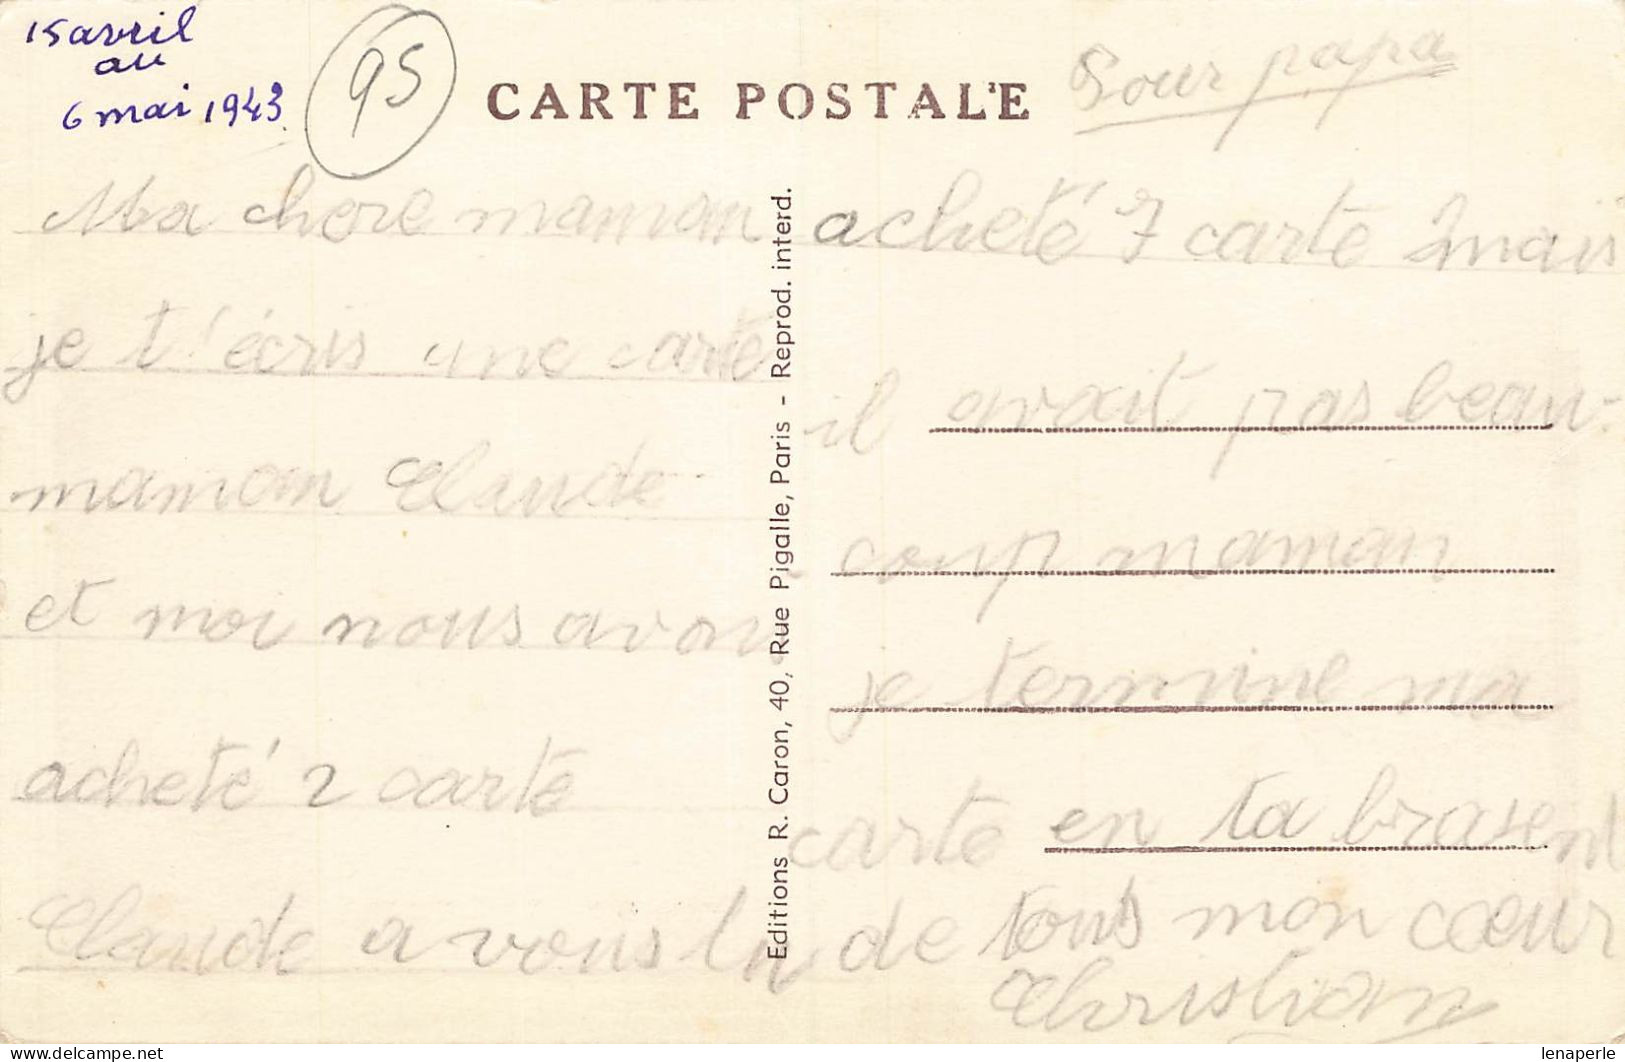 15 avril
au
6 mai 1943
95
CARTE POSTALE
Pour papa
Ma chere maman
je t'écris une carte
maman Claude
et moi nous avon
acheté 2 carte
Claude a vous
acheté 7 carte 2 mais
il avait pas beau-
coup maman
je termine ma
carte en ta brasent
de tous mon cœur
Christian
Editions R. Caron, 40, Rue Pigalle, Paris - Reprod. interd.
lenaperle